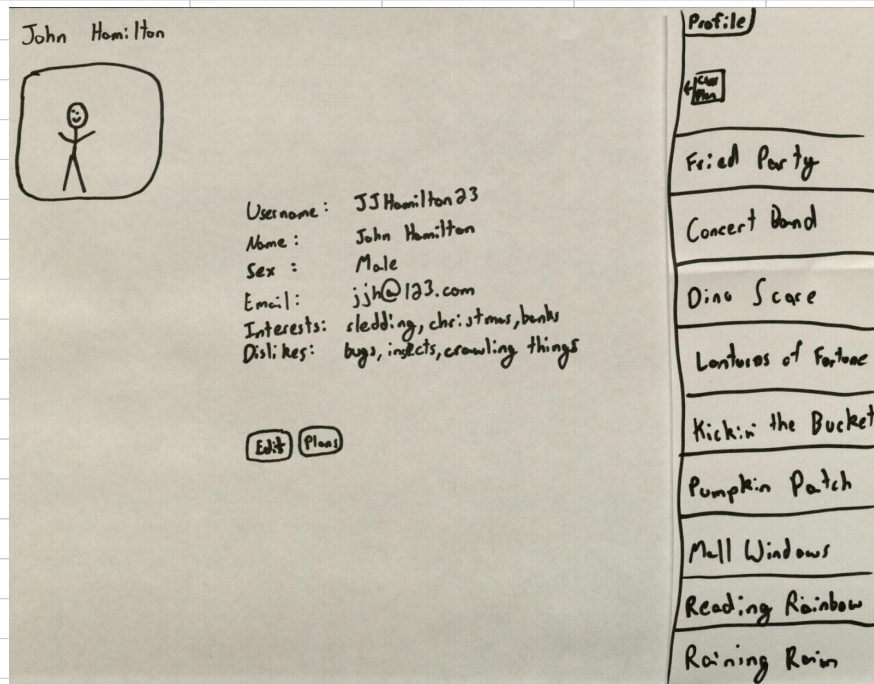 John Hamilton
Username: JJHamilton23
Name: John Hamilton
Sex: Male
Email: jjh@123.com
Interests: sledding, christmas, banks
Dislikes: bugs, insects, crawling things
Edit Plans
Profile
Plan
Fried Party
Concert Band
Dino Scare
of Fortune
Kickin the Bucket
Pumpkin Patch
Mall Windows
Reading Rainbow
Raining Rain